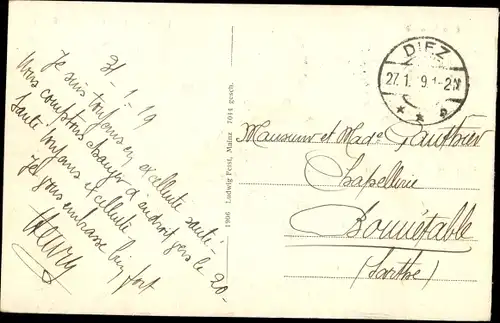 31-1-19
Je suis toujours en excellente santé-
Nous comptons changer d'endroit vers le 20-
Santé toujours excellente
Je vous embrasse bien fort
Henry
1906 Ludwig Feist, Mainz 7014 gesch.
DIEZ
27.1. 9.1-2N
* * b
Monsieur et Made Gauthier
Chapellerie
Bonnétable
(Sarthe)